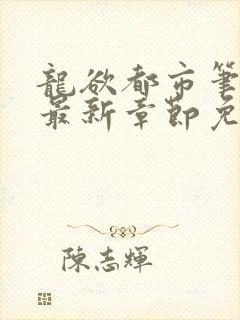 龍欲都市筆
最新章節免
陳志輝